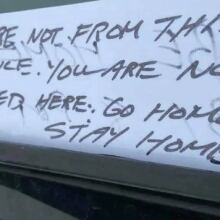 RE NOT FROM THI
NCE. YOU ARE NO
ED HERE. GO HOME
STAY HOME